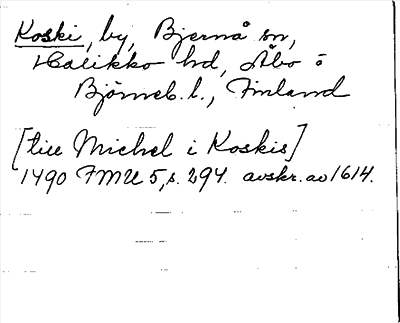 Koski, by, Bjernå sn,
Halikko hd, Åbo o
Björneb. l., Finland
[till Michel i Koskis]
1490 FMU 5, s. 294. avskr. av 1614.